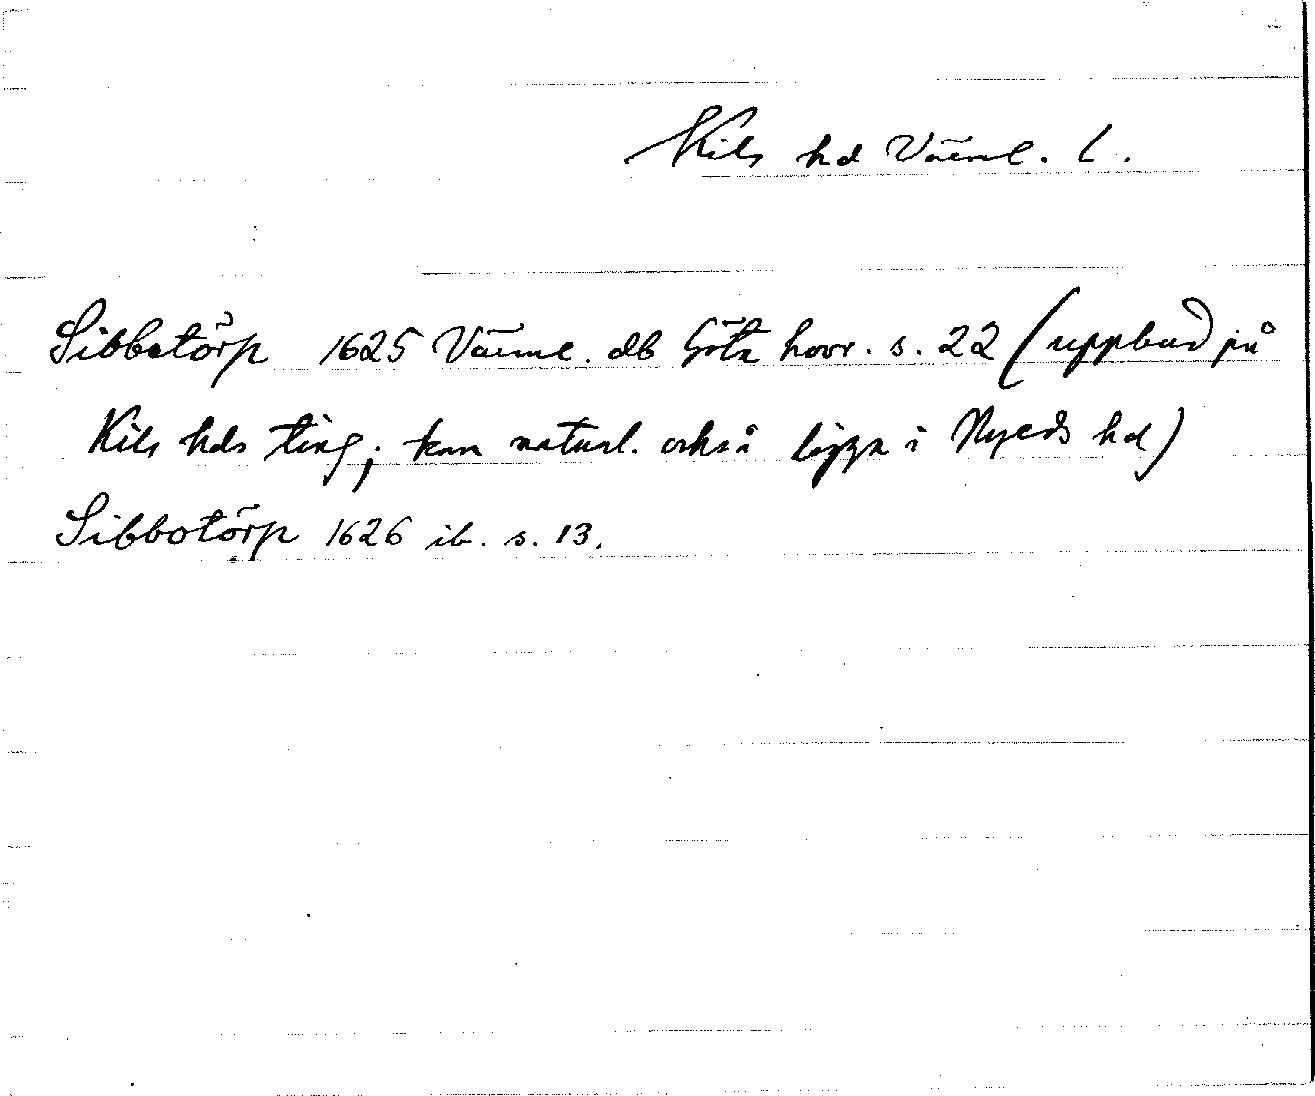 Kils hd Värml. l.
Sibbatörp 1625 Värml. db Göta hovr. s. 22 (uppbud på
Kils hds ting; kan naturl. också ligga i Nyeds hd)
Sibbotörp 1626 ib. s. 13.